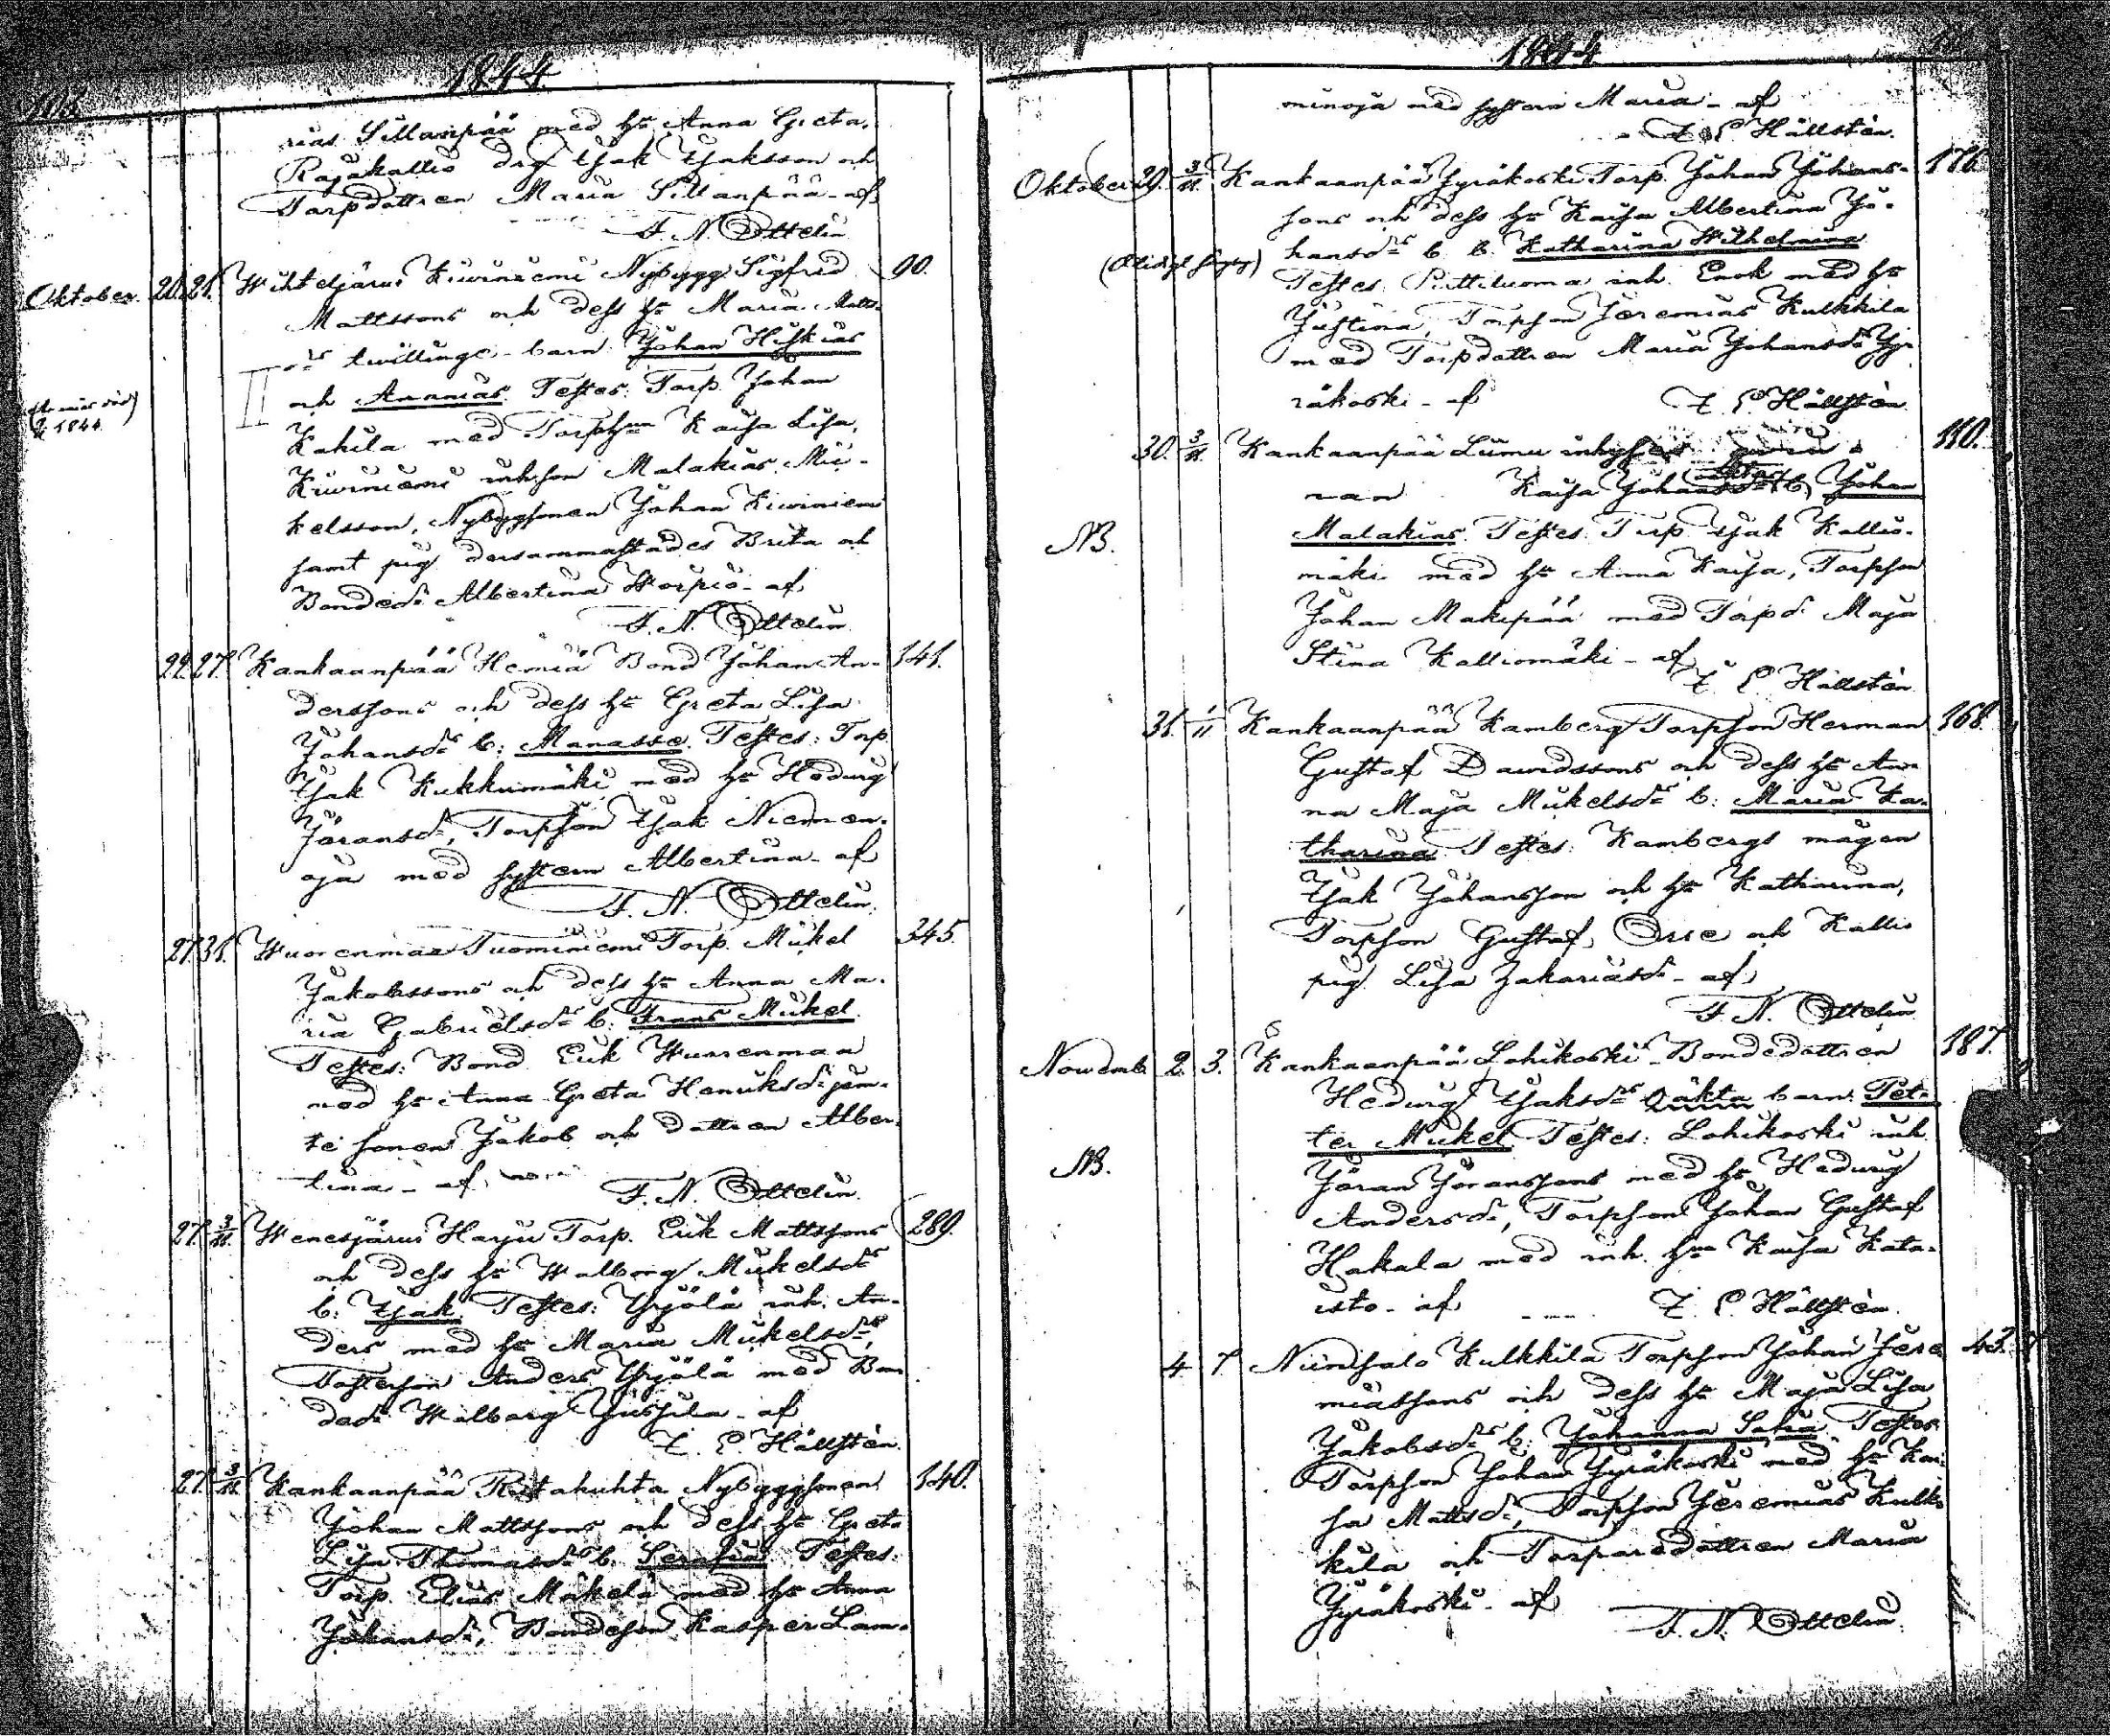 102.
1844.
rias Sillanpää med h: Anna Greta,
Rajakallio drg Isak Isaksson och
Torpdottren Maria Sillanpää - af
F. N. Ottelin
Oktober. 20. 21. Wihteljärvi Kiviniemi Nybygg. Sigfrid 90.
Mattssons och dess h: Maria Matts-
d:r twillinge - barn Johan Hiskias
II och Ananias. Testes: Torp. Johan
1844
Kahila med Torph:n Kaisa Lisa,
Kiviniemi inh.son Malakias Mi-
kelsson, Nybyggsonen Johan Kiviniemi
samt pig. dersammastädes Brita och
Bonded: Albertina Worpio - af
F. N. Ottelin
22. 27. Kankaanpää Heniä Bond Johan An- 141.
derssons och dess h: Greta Lisa
Johansd:r b: Manasse. Testes: Torp
Isak Kukkumäki med h: Hedvig
Göransd:, Torpson Isak Niemen-
oja med systern Albertina - af
F. N. Ottelin.
27. 31. Wuorenmaa Tuominiemi Torp. Mikel 345.
Jakobssons och dess h: Anna Ma-
ria Gabrielsd:r b: Frans Mikel.
Testes: Bond Erik Wuorenmaa
med h: Anna Greta Henriksd: jem-
te sonen Jakob och dottren Alber-
tina - af
F. N. Ottelin.
27. 3/11. Wenesjärvi Harju Torp. Erik Mattssons 289.
och dess h: Walborg Mikelsd:r
b: Isak. Testes: Yrjölä inh. An-
ders med h: Maria Mikelsd:r,
Torpson Anders Yrjölä med Bon
ded: Walborg Jussila - af
Z. E. Hällstén.
27. 3/11. Kankaanpää Ritakuhta Nybyggsonen 140.
Johan Mattssons och dess h: Greta
Lisa Thomasd:r b: Serafia. Testes:
Torp. Elias Mäkelä med h: Anna
Johansd:, Bondeson Kasper Lam-
1844
minoja med systern Maria - af
Z. E. Hällstén.
Oktober 29. 3/11. Kankaanpää Jyräkoski Torp. Johan Johans- 176.
sons och dess h: Kaisa Albertina Jo-
hansd:r b. b. Katharina Wilhelmina
Testes: Pirttiluoma inh. Enok med h:
Justina, Torpson Jeremias Kulkkila
med Torpdottren Maria Johansd: Jy-
räkoski - af Z. E. Hällstén.
30. 3/11. Kankaanpää Lumu inhyses 110.
Kaisa Johansd:r b, Johan
NB. Malakias. Testes: Torp Isak Kallio-
mäki med h: Anna Kaisa, Torpson
Johan Makepää med Torpd: Maja
Stina Kalliomäki - af
Z. E. Hällstén
31. 1/11 Kankaanpää Kamberg Torpson Herman 168.
Gustaf Davidssons och dess h: An-
na Maja Mikelsd:r b: Maria Ka-
tharina. Testes: Kambergs mågen
Isak Johansson och h: Katharina,
Torpson Gustaf Orre och Kallio
pig. Lisa Zakariasd: - af
F. N. Ottelin
Novemb. 2. 3. Kankaanpää Lohikoski - Bondedottren 187.
Hedvig Isaksd:r oäkta barn: Pet-
ter Mikel. Testes: Lohikoski inh
NB. Jöran Jöranssons med h: Hedvig
Andersd:, Torpson Johan Gustaf
Hakala med inh. h:n Kaisa Kata-
isto - af Z. E. Hällstén.
4 7 Niinisalo Kulkkila Torpson Johan Jere 43.
miassons och dess h: Maja Lisa
Jakobsd:r b: Johanna Sofia. Testes:
Torpson Johan Jyräkoski med h: Kai-
sa Mattsd:, Torpson Jeremias Kulk-
kila och Torparedottren Maria
Jyräkoski - af
F. N. Ottelin.